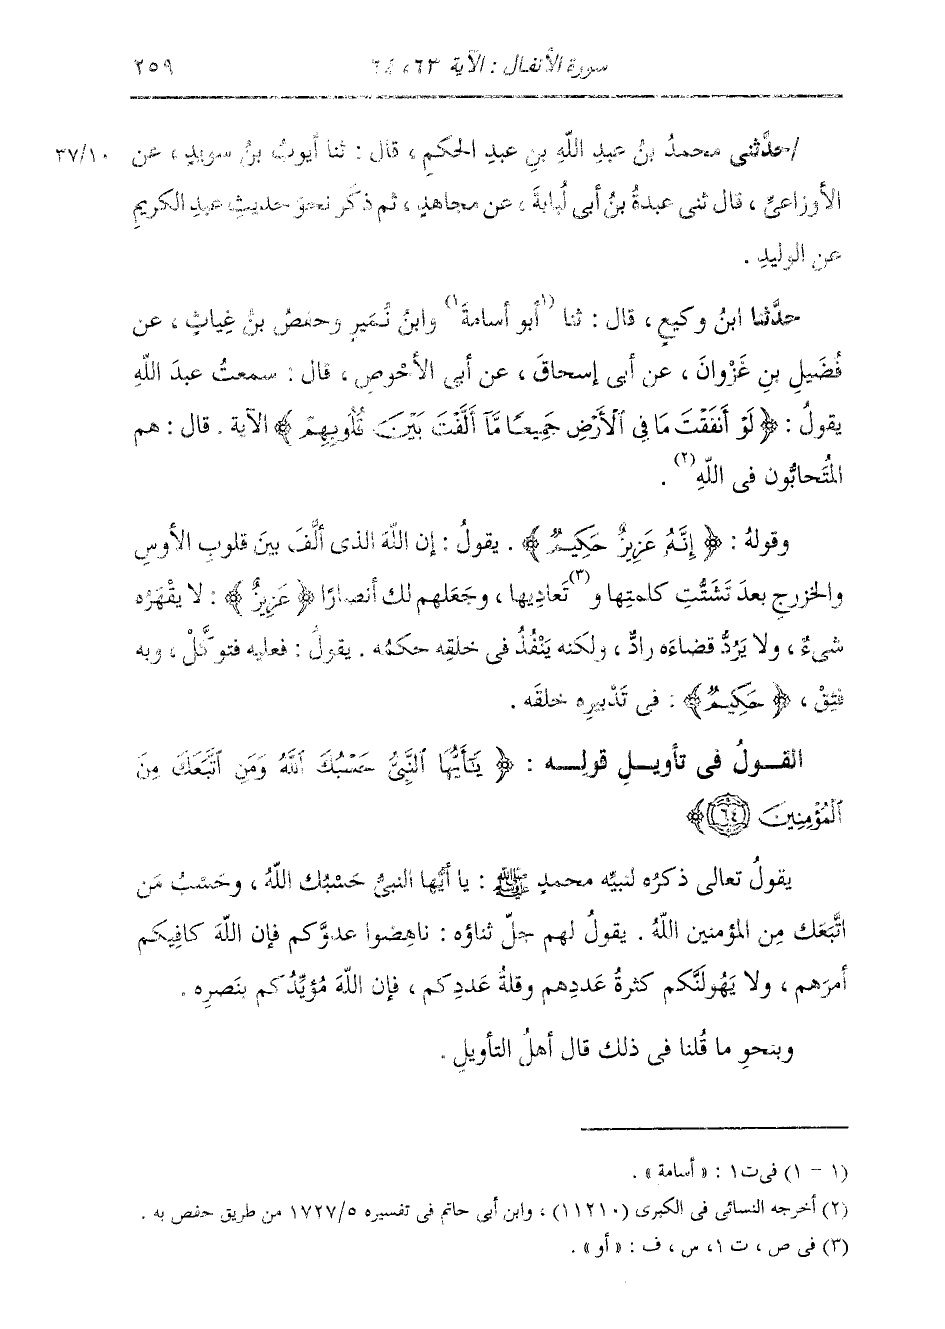 سورة الأنفال : الآية ٦٣، ٦٤ ٢٥٩
/حدَّثنى محمدُ بنُ عبدِ اللَّهِ بنِ عبدِ الحكمِ ، قال : ثنا أيوبُ بنُ سويدٍ ، عن ٣٧/١٠
الأوزاعىِّ ، قال ثنى عبدةُ بنُ أبى لُبابةَ ، عن مجاهدٍ ، ثم ذكَر نحوَ حديثِ عبدِ الكريمِ
عن الوليدِ .
حدَّثنا ابنُ وكيعٍ ، قال : ثنا (١أبو أسامةَ١) وابنُ نُميرٍ وحفصُ بنُ غِياثٍ ، عن
فُضَيلِ بنِ غَزْوانَ ، عن أبى إسحاقَ ، عن أبى الأحْوصِ ، قال : سمعتُ عبدَ اللَّهِ
يقولُ : ﴿ لَوْ أَنفَقْتَ مَا فِى ٱلْأَرْضِ جَمِيعًا مَّآ أَلَّفْتَ بَيْنَ قُلُوبِهِمْ ﴾ الآية . قال : هم
المُتَحابُّون فى اللَّهِ(٢) .
وقولهُ : ﴿ إِنَّهُ عَزِيزٌ حَكِيمٌ ﴾ . يقولُ : إن اللَّهَ الذى ألَّفَ بينَ قلوبِ الأوسِ
والخزرجِ بعدَ تَشَتُّتِ كلمتِها و(٣)تَعادِيها ، وجَعَلهم لك أنصارًا ﴿ عَزِيزٌ ﴾ : لا يقْهَرُه
شىءٌ ، ولا يَرُدُّ قضاءَه رادٌّ ، ولكنه يَنْفُذُ فى خلقِه حكمُه . يقولُ : فعليه فتوكَّلْ ، وبه
فثِقْ ، ﴿ حَكِيمٌ ﴾ : فى تَدْبيرِه خلقَه .
القــولُ فى تأويــلِ قولِــه : ﴿ يَٰٓأَيُّهَا ٱلنَّبِىُّ حَسْبُكَ ٱللَّهُ وَمَنِ ٱتَّبَعَكَ مِنَ
ٱلْمُؤْمِنِينَ ٦٤ ﴾
يقولُ تعالى ذكرُه لنبيِّه محمدٍ ﷺ : يا أيُّها النبىُّ حَسْبُك اللَّهُ ، وحَسْبُ مَن
اتَّبَعَك مِن المؤمنين اللَّهُ . يقولُ لهم جلّ ثناؤه : ناهِضوا عدوَّكم فإن اللَّهَ كافِيكم
أمرَهم ، ولا يَهُولَنَّكم كثرةُ عَددِهم وقلةُ عَددِكم ، فإن اللَّهَ مُؤَيِّدُكم بنَصرِه .
وبنحوِ ما قُلنا فى ذلك قال أهلُ التأويلِ .
(١ - ١) فى ت١ : « أسامة » .
(٢) أخرجه النسائى فى الكبرى (١١٢١٠) ، وابن أبى حاتم فى تفسيره ١٧٢٧/٥ من طريق حفص به .
(٣) فى ص ، ت ١، س ، ف : « أو » .